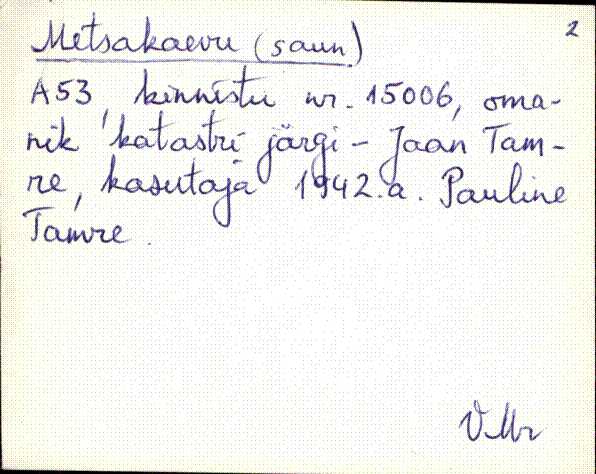 2
Metsakaevu (saun)
A53, kinnistu nr. 15006, oma-
nik katastri järgi - Jaan Tam-
re, kasutaja 1942.a. Pauline
Tamre.
VMr